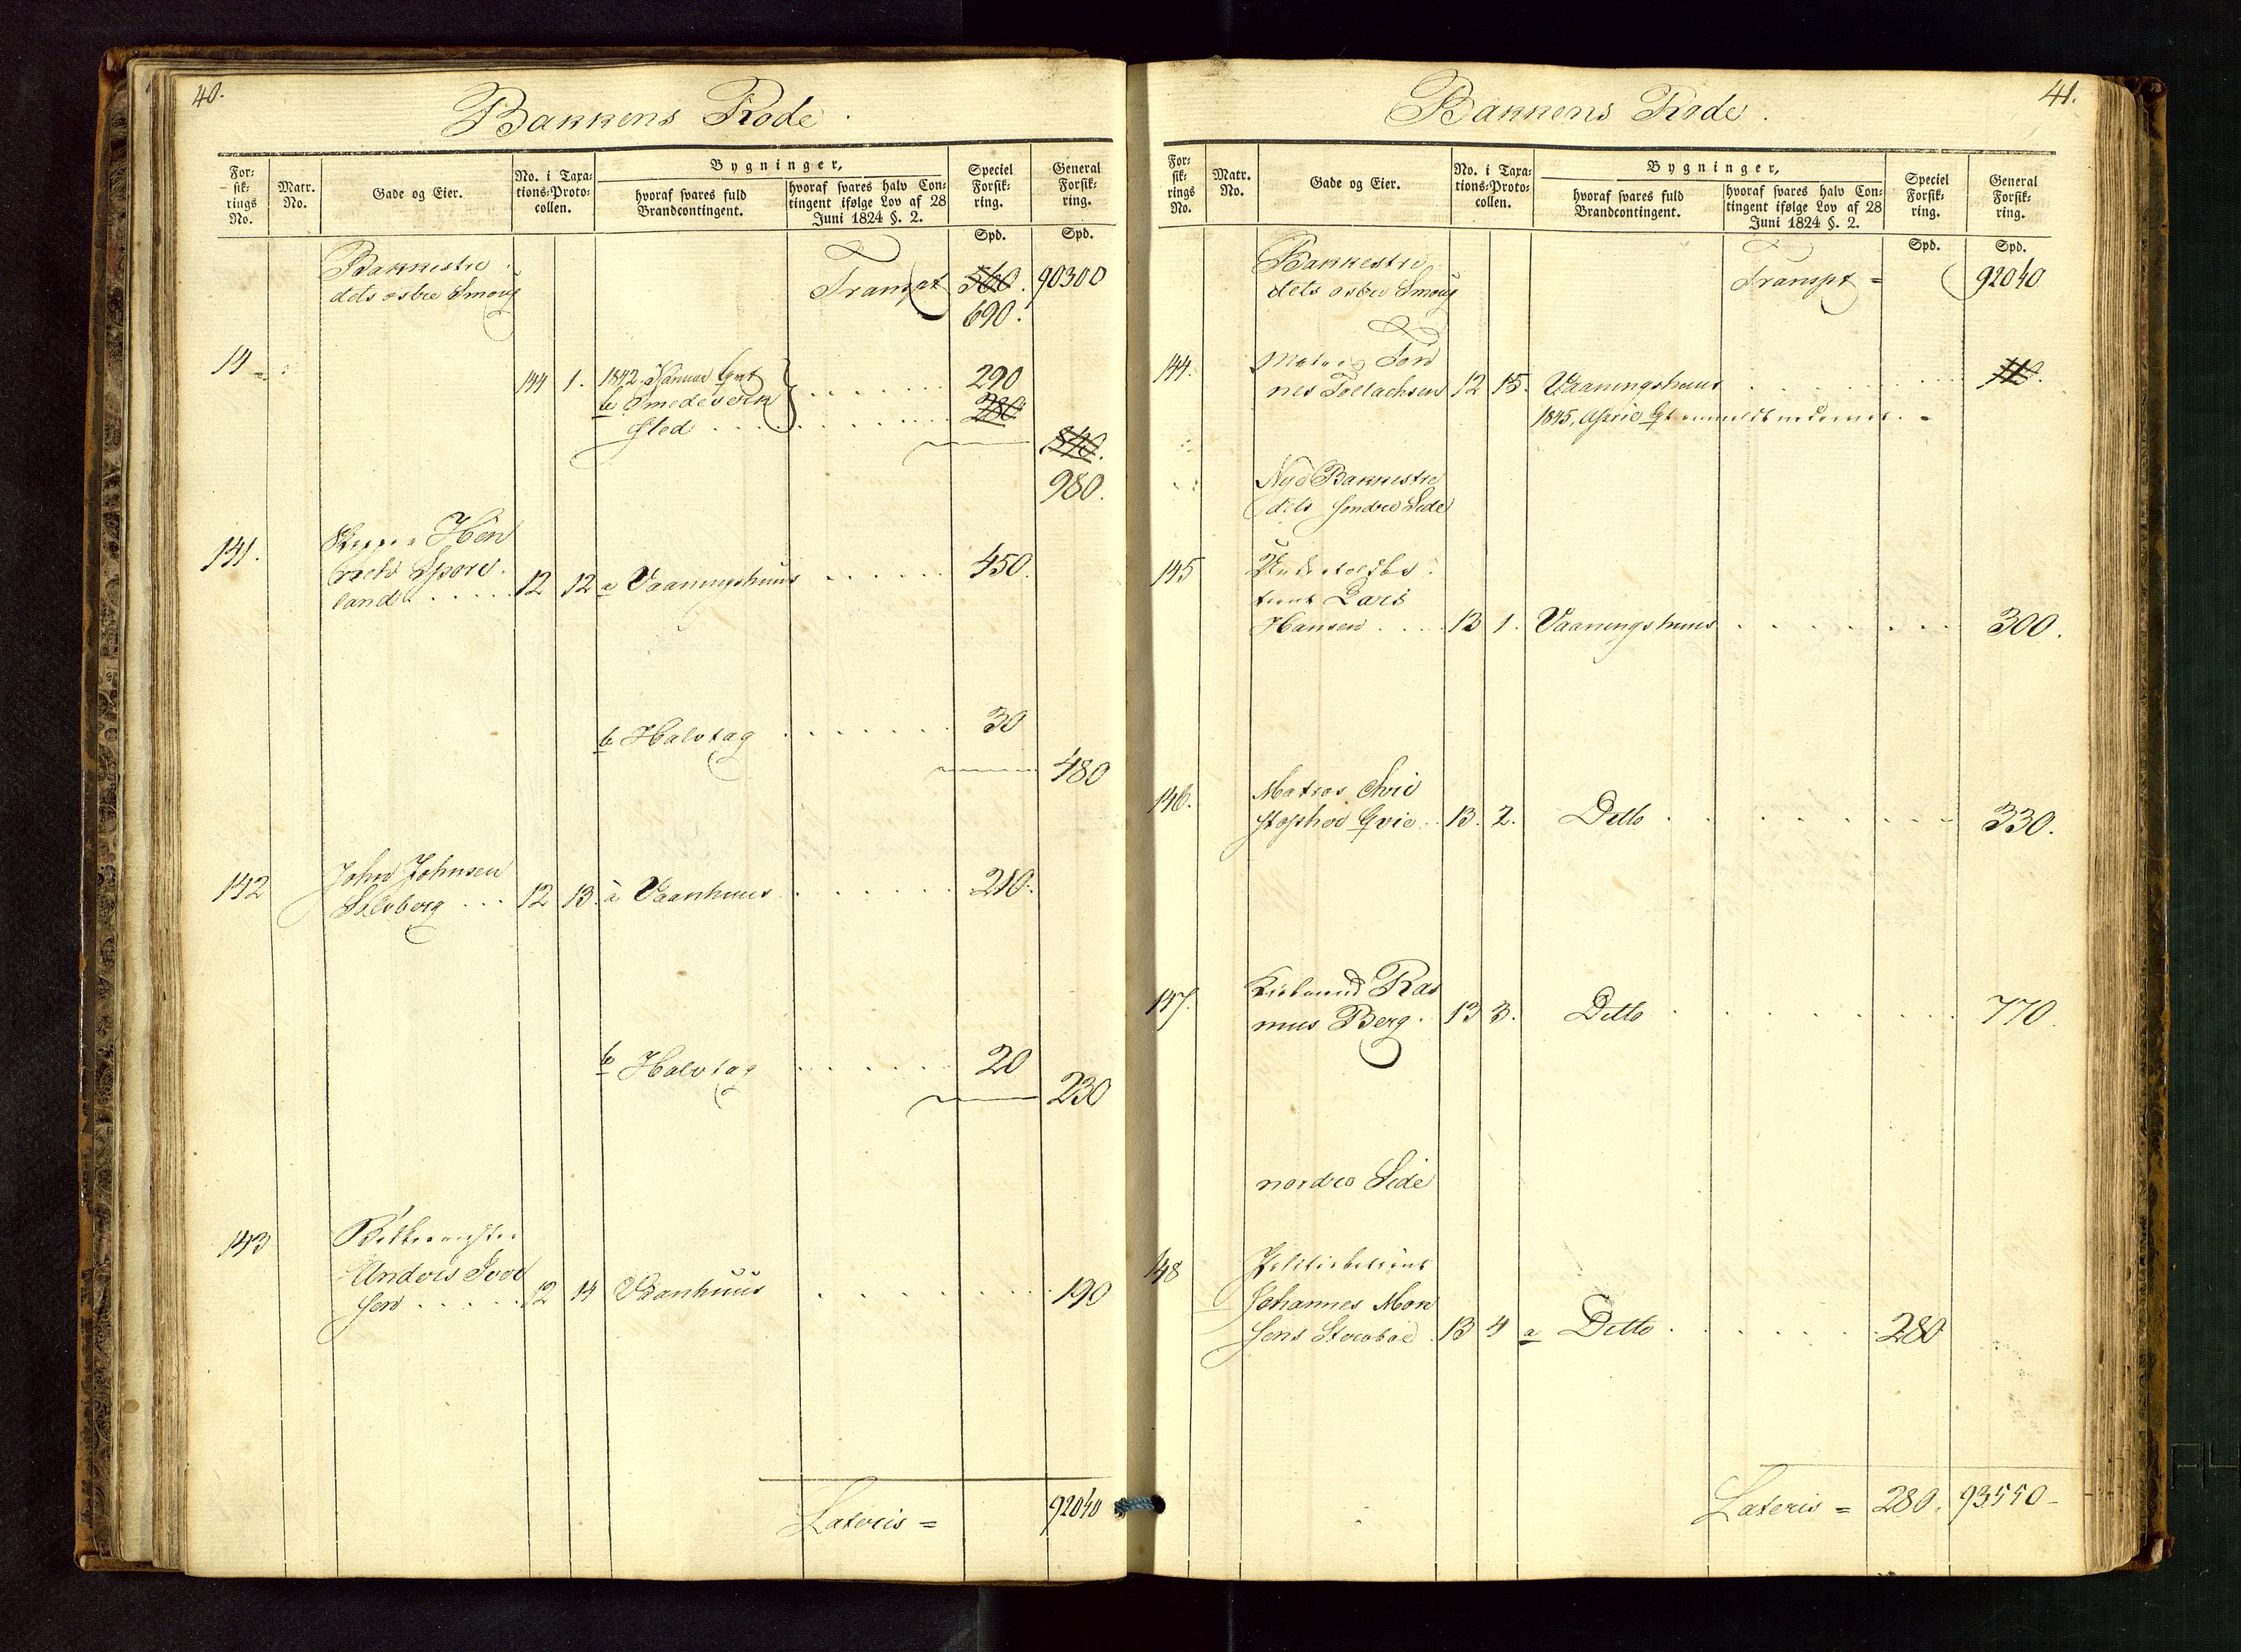 40.
Bakkens Rode.
For-
sik-
rings
No.
Matr.
No.
Gade og Eier.
No. i Taxa-
tions-Proto-
collen.
Bygninger,
hvoraf svares fuld
Brandcontingent.
hvoraf svares halv Con-
tingent ifølge Lov af 28
Juni 1824 §. 2.
Speciel
Forsik-
ring.
General
Forsik-
ring.
Spd.
Spd.
Bakkestræ
dets østre Smoug
Transpt
560. 90300
690.
14
144 1. 1842 Januar
b Smedeværk
sted
290
280
840.
980.
141. Hen
rich
land 12 12 a Vaaningshuus 450.
b Halvtag 30
480
142 John Johnsen
Solberg 12 13. a Vaanhuus 210.
b Halvtag 20
230
143
Anders Iver
sen 12 14 Vaanhuus 190
Lateris = 92040
41.
Bakkens Rode.
For-
sik-
rings
No.
Matr.
No.
Gade og Eier.
No. i Taxa-
tions-Proto-
collen.
Bygninger,
hvoraf svares fuld
Brandcontingent.
hvoraf svares halv Con-
tingent ifølge Lov af 28
Juni 1824 §. 2.
Speciel
Forsik-
ring.
General
Forsik-
ring.
Spd.
Spd.
Bakkestræ
dets østre Smoug
Transpt = 92040
144. Tøn
nes Tollachsen 12 15. Vaaningshuus
1845, April
Nye Bakkestræ
dets søndre Side
145
Lars
Hansen 13 1. Vaaningshuus 300.
146. Matros Chri
stopher 13. 2. Ditto 330.
147. Ras
mus Berg. 13 3. Ditto 770.
nordre Side
148 Politiebetient
Johannes Mon
sens 13 4 a Ditto 280
Lateris = 280. 93550